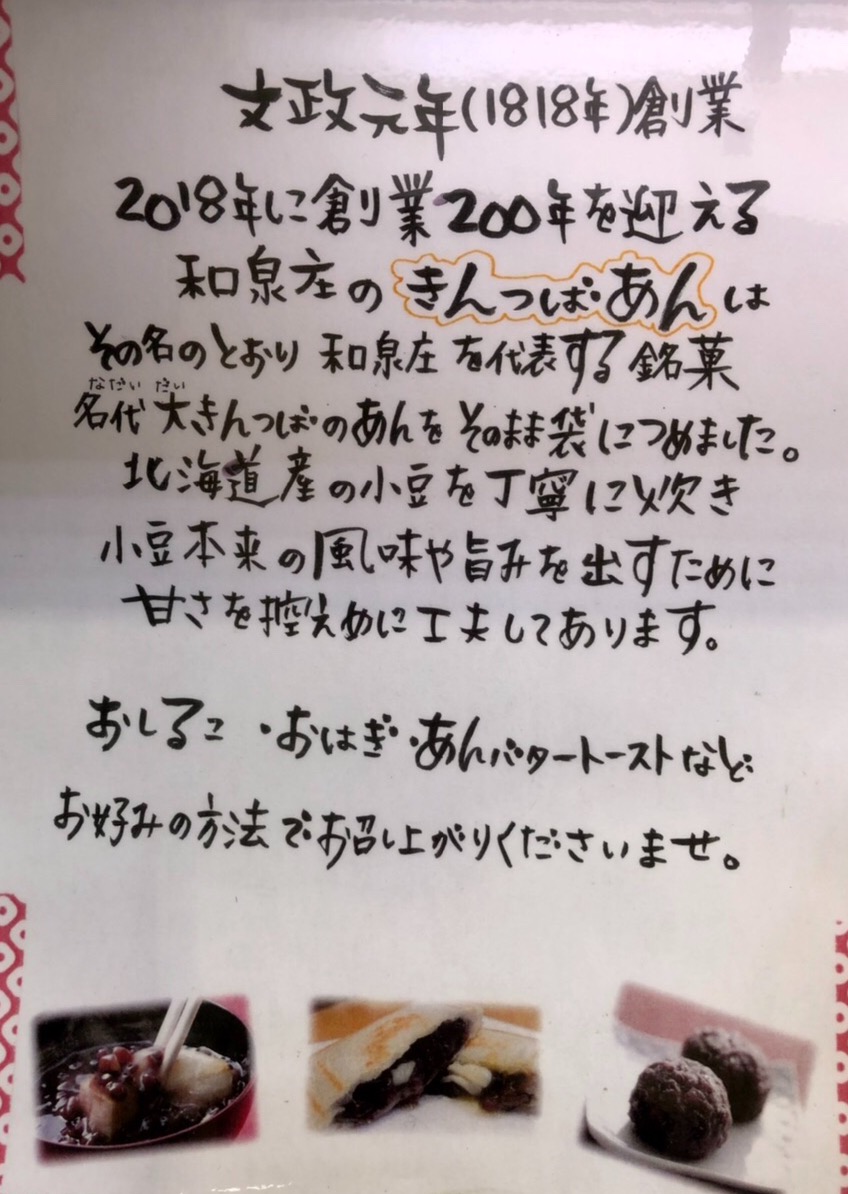 文政元年(1818年)創業
2018年に創業200年を迎える
和泉庄のきんつばあんは
その名のとおり 和泉庄を代表する銘菓
なだい だい
名代 大きんつばのあんをそのまま袋につめました。
北海道産の小豆を丁寧に炊き
小豆本来の風味や旨みを出すために
甘さを控えめに工夫してあります。
おしるこ・おはぎ・あんバタートーストなど
お好みの方法でお召し上がりくださいませ。